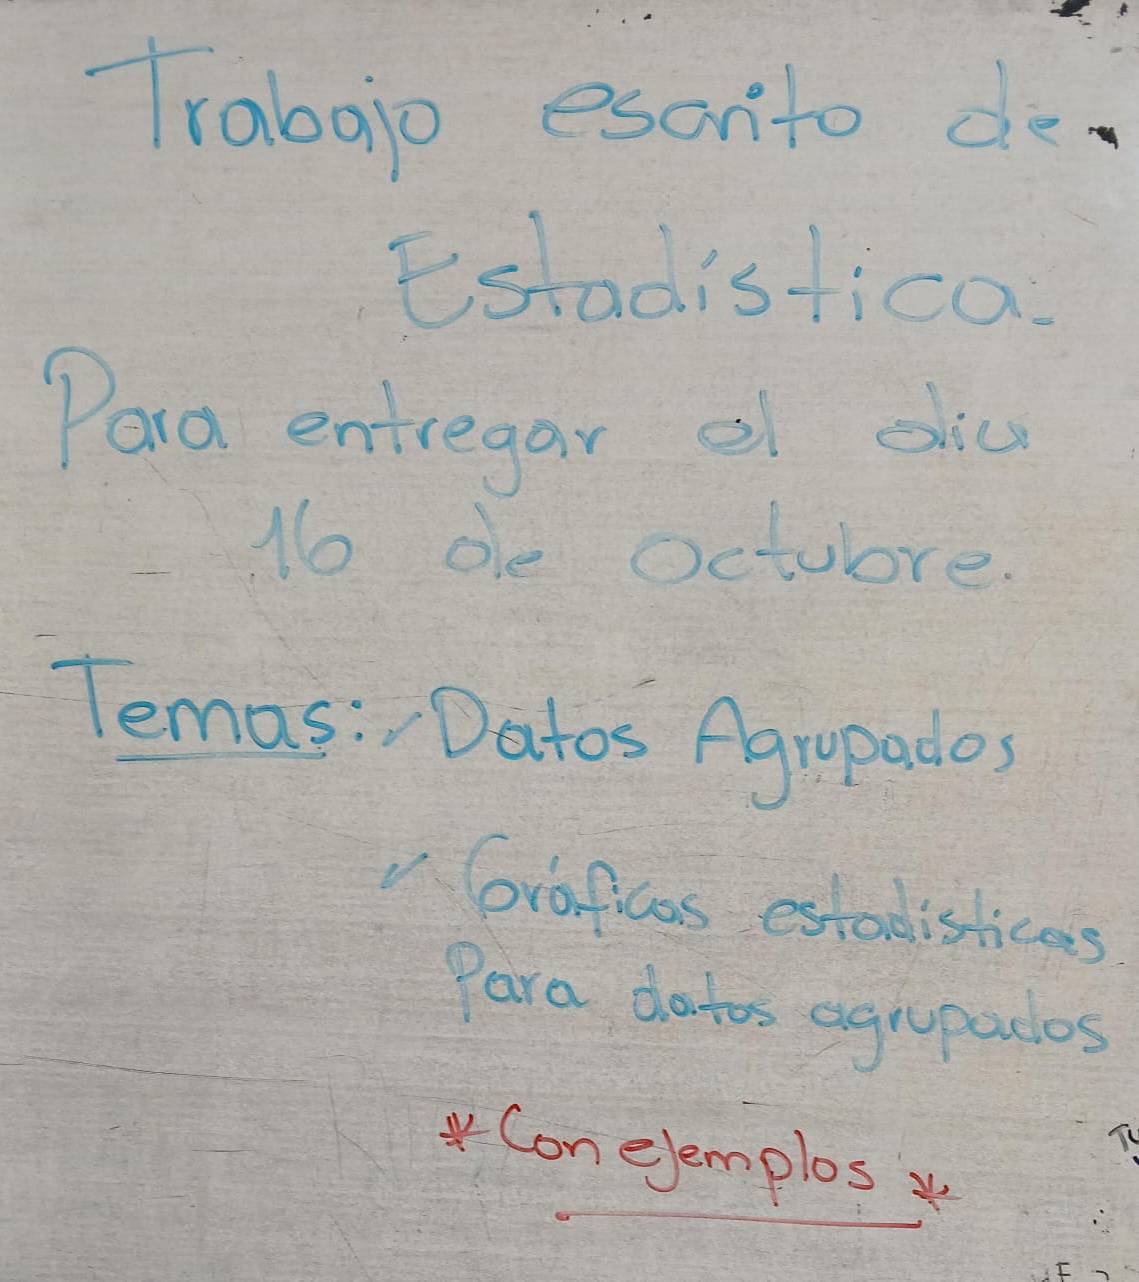 Trabajo escrito de
Estadística.
Para entregar el dia
16 de Octubre.
Temas: ✓ Datos Agrupados
✓ Gráficas estadisticas
Para datos agrupados
* Con ejemplos *